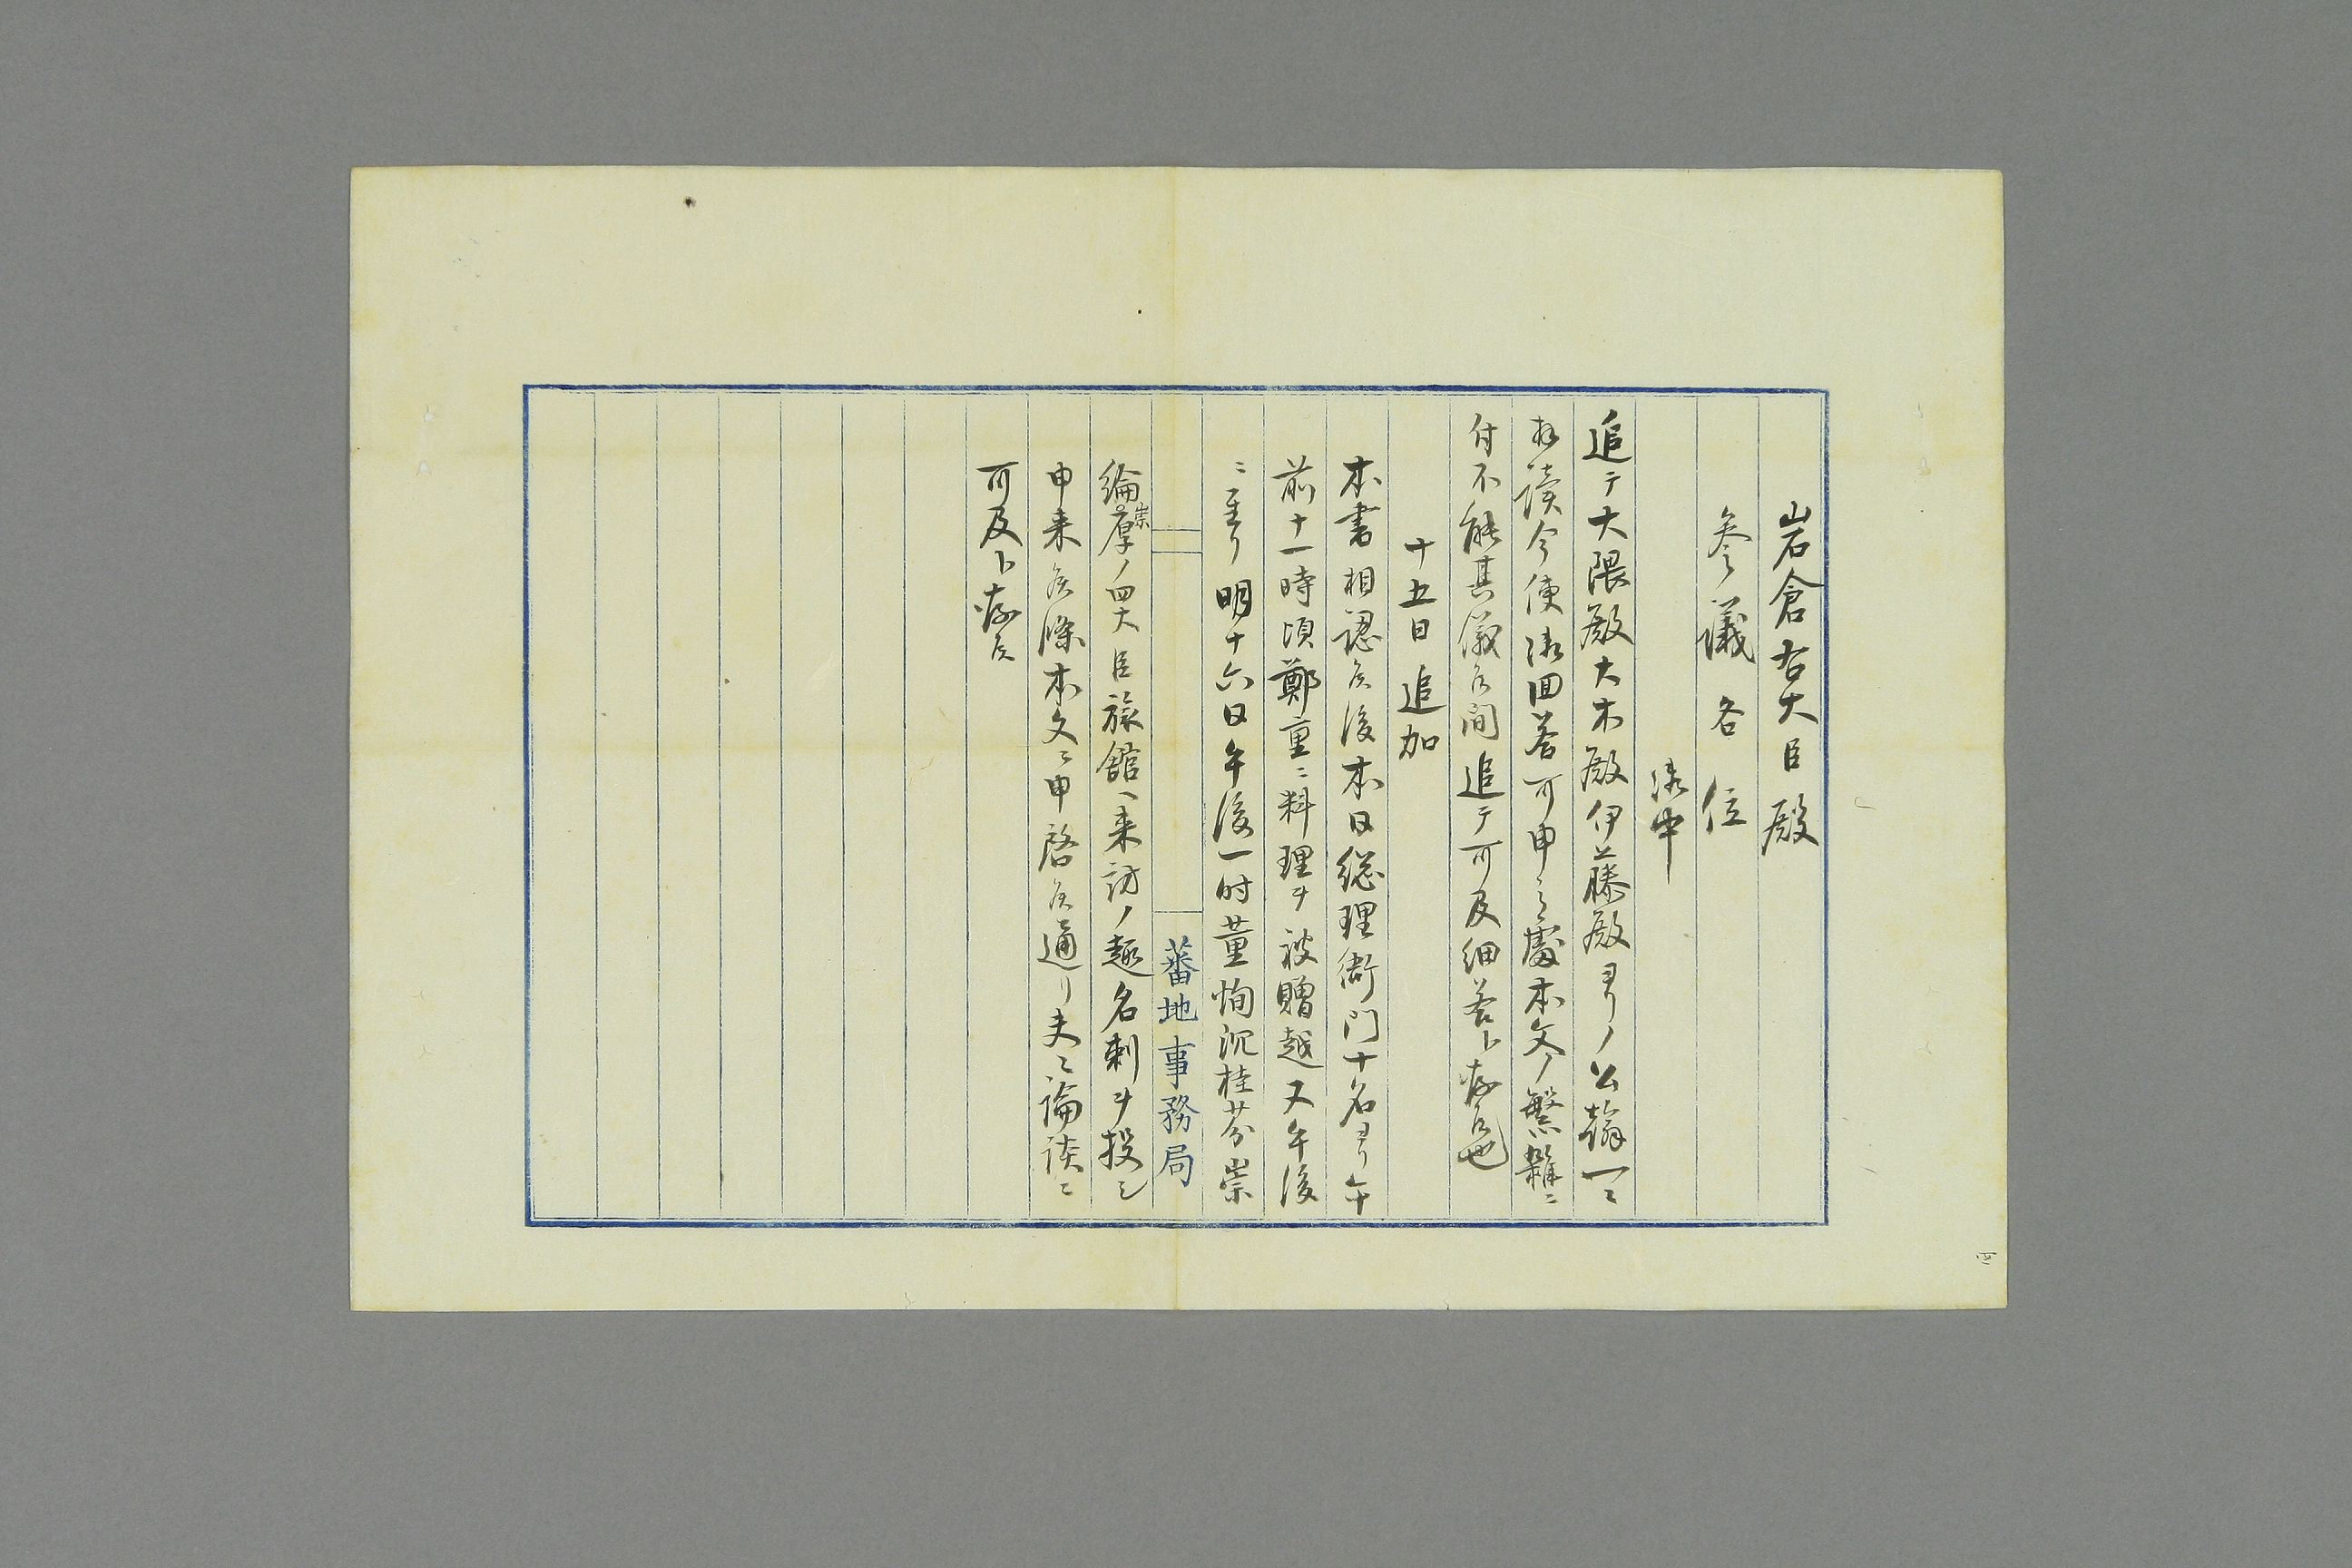 岩倉右大臣殿
参議各位
御中
追テ大隈殿大木殿伊藤殿ヨリノ公翰一々
拝読今便御回答可申之處本文ノ繁雑ニ
付不能其儀候間追テ可及細答ト存候也
十五日追加
本書相認候後本日総理衙門十名ヨリ午
前十一時頃鄭重ニ料理ヲ被贈越又午後
ニ至リ明十六日午後一時董恂沈桂芬崇
綸崇厚ノ四大臣旅舘ヘ来訪ノ趣名刺ヲ投シ
申来候條本文ニ申啓候通リ夫々論談ニ
可及ト存候
蕃地事務局
四